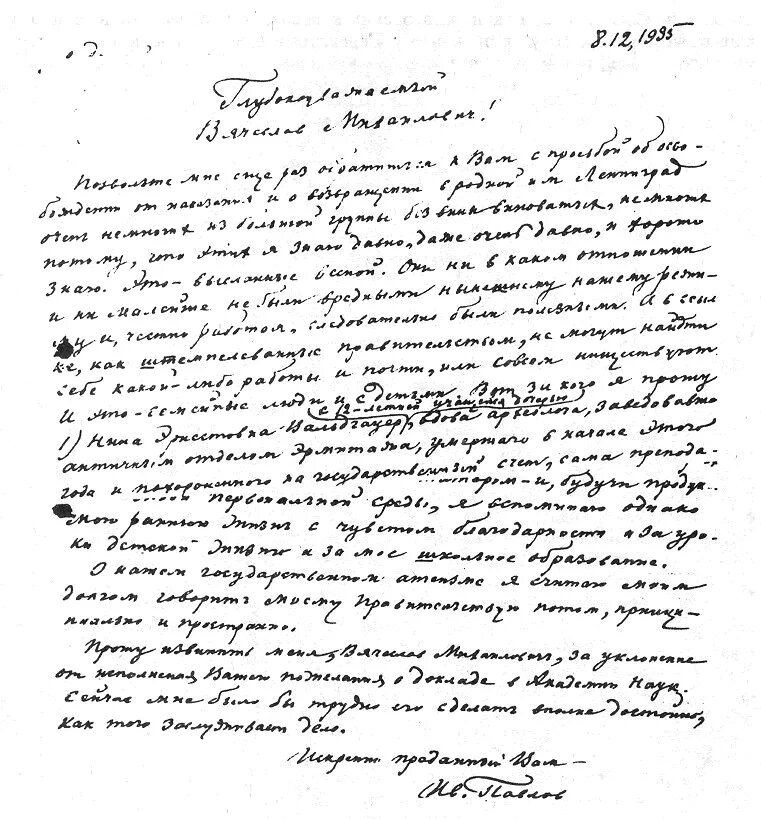 8.12,1935
Глубокоуважаемый
Вячеслав Михайлович!
Позвольте мне еще раз обратиться к Вам с просьбой об осво-
бождении от наказания и о возвращении в родной им Ленинград
очень немногих из большой группы без вины виноватых, немногих
потому, что этих я знаю давно, даже очень давно, и хорошо
знаю. Это-высланные весной. Они ни в каком отношении
и ни малейше не были вредными нынешнему нашему режи-
му и, честно работая, следовательно были полезными. А в ссыл
ке, как штемпелеванные правительством, не могут найти
себе какой-либо работы и почти, или совсем ниществуют.
И это-семейные люди и с детьми. Вот за кого я прошу
с 12-летней учащейся дочерью
1) Нина Эрнестовна Вальдгауер, вдова археолога, заведовавш
античным отделом Эрмитажа, умершего в начале этого
года и похороненного на государственный счет, сама препода-
тером-и, будучи продук
первоначальной среды, я вспоминаю однако
мою раннюю жизнь с чувством благодарности и за уро-
ки детской жизни и за мое школьное образование.
О нашем государственном атеизме я считаю моим
долгом говорить моему Правительству потом, принци-
пиально и пространно.
Прошу извинить меня, Вячеслав Михайлович, за уклонение
от исполнения Вашего пожелания о докладе в Академии Наук.
Сейчас мне было бы трудно его сделать вполне достойно,
как того заслуживает дело.
Искренно преданный Вам —
Ив. Павлов